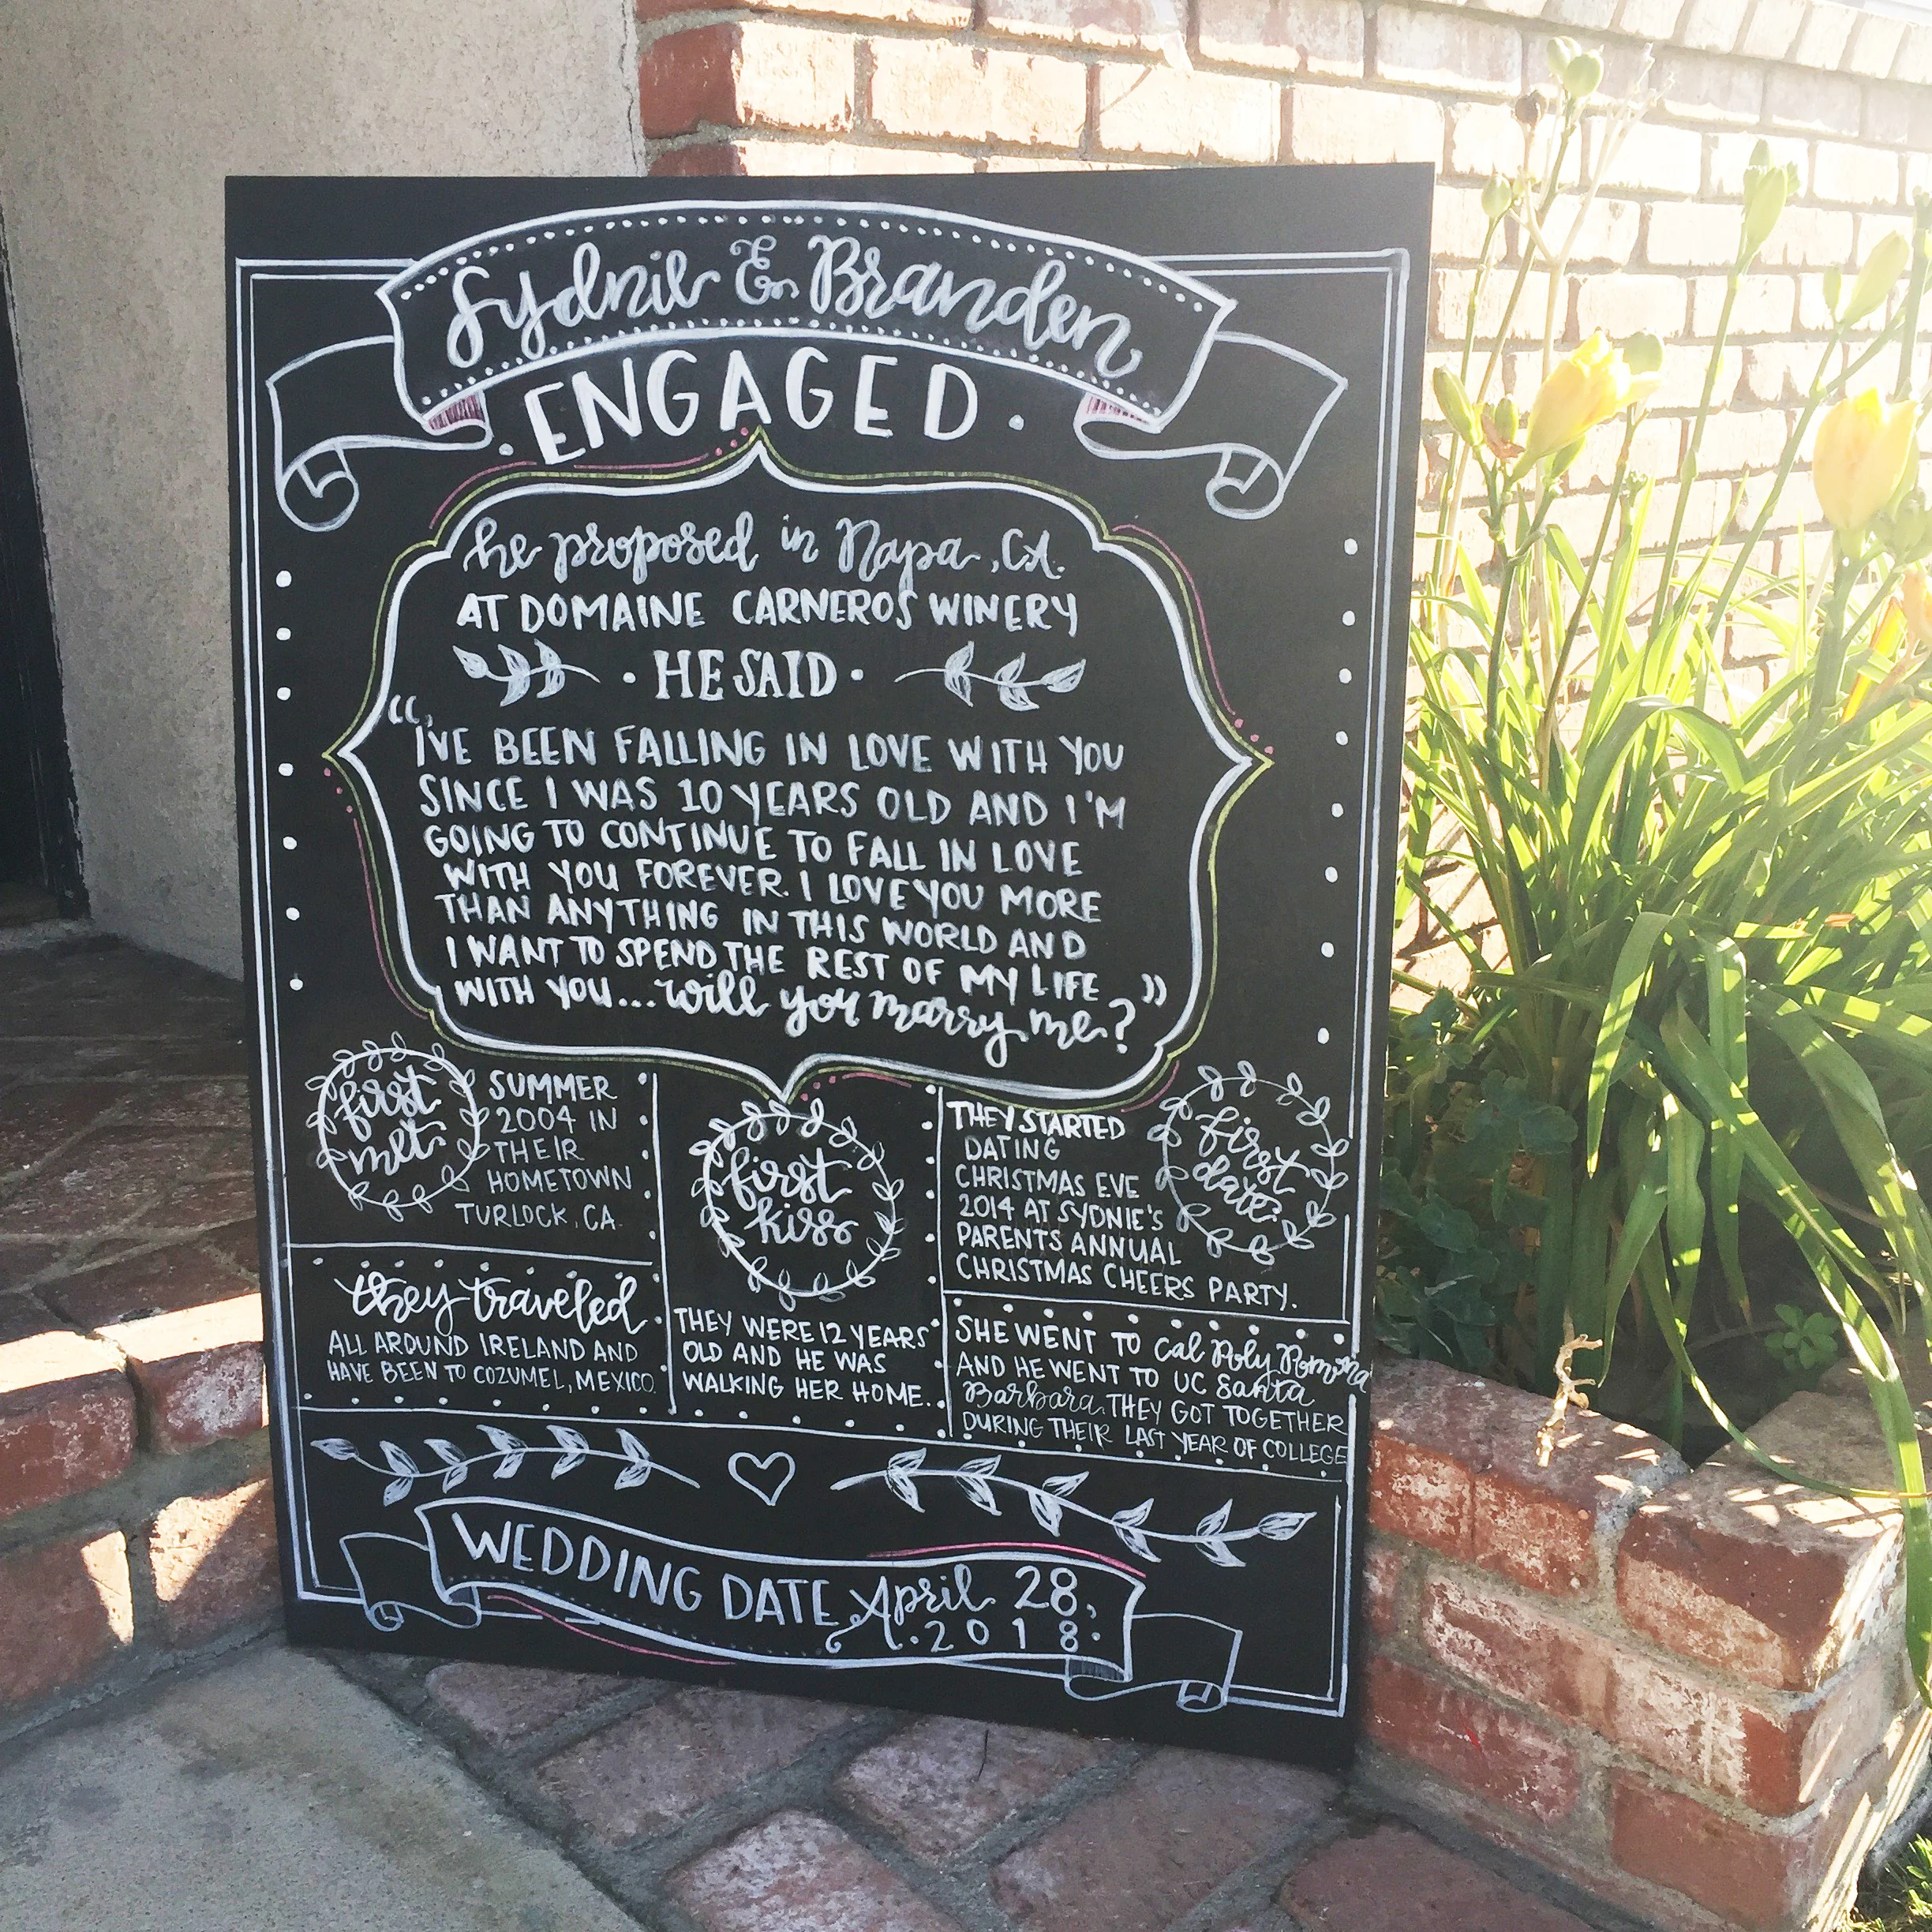 Sydnie & Branden
ENGAGED.
he proposed in Napa, CA.
AT DOMAINE CARNEROS WINERY
· HE SAID ·
"I'VE BEEN FALLING IN LOVE WITH YOU
SINCE I WAS 10 YEARS OLD AND I'M
GOING TO CONTINUE TO FALL IN LOVE
WITH YOU FOREVER. I LOVE YOU MORE
THAN ANYTHING IN THIS WORLD AND
I WANT TO SPEND THE REST OF MY LIFE
WITH YOU... will you marry me?"
first
met
SUMMER
2004 IN
THEIR
HOMETOWN
TURLOCK, CA.
they traveled
ALL AROUND IRELAND AND
HAVE BEEN TO COZUMEL, MEXICO.
first
kiss
THEY WERE 12 YEARS
OLD AND HE WAS
WALKING HER HOME.
first
date
THEY STARTED
DATING
CHRISTMAS EVE
2014 AT SYDNIE'S
PARENTS ANNUAL
CHRISTMAS CHEERS PARTY.
SHE WENT TO Cal Poly Pomona
AND HE WENT TO UC Santa
Barbara. THEY GOT TOGETHER
DURING THEIR LAST YEAR OF COLLEGE
WEDDING DATE April 28,
·2018·